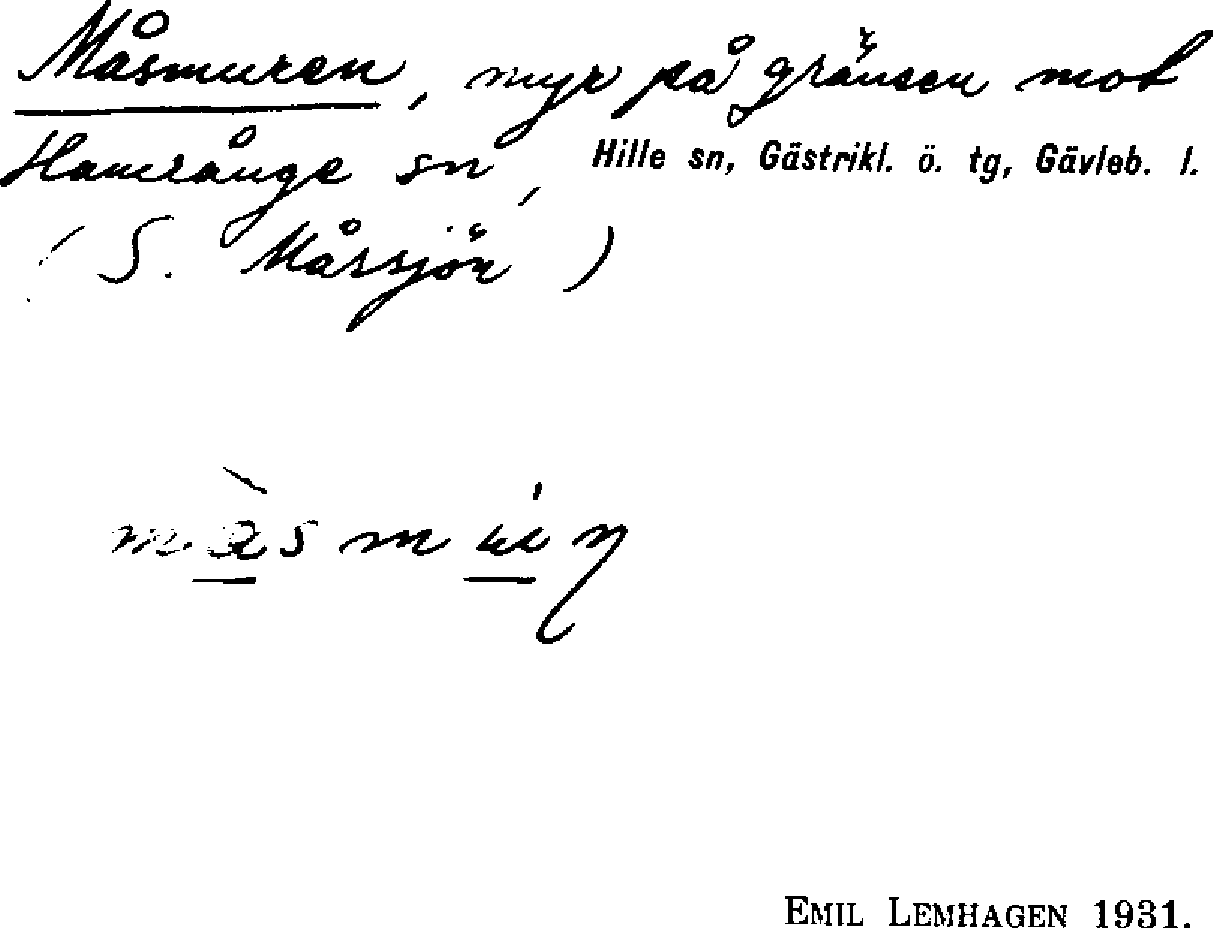 Måsmuren, myr på gränsen mot
Hamrånge sn,
Hille sn, Gästrikl. ö. tg, Gävleb. l.
(S. Mårsjön)
EMIL LEMHAGEN 1931.